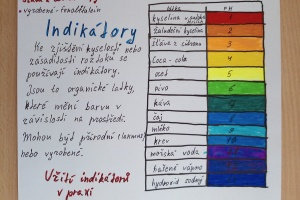 vyrobené - fenolftalein
Indikátory
Ke zjištění kyselosti nebo
zásaditosti roztoku se
používají indikátory.
Jsou to organické látky,
které mění barvu v
závislosti na prostředí.
Mohou být přírodní (lakmus)
nebo vyrobené.
Užití indikátorů
v praxi
PH
kyselina v
žaludeční kyselina
šťáva z citronu
Coca - cola
ocet
pivo
káva
čaj
mléko
krev
mořská voda
hašené vápno
hydroxid sodný